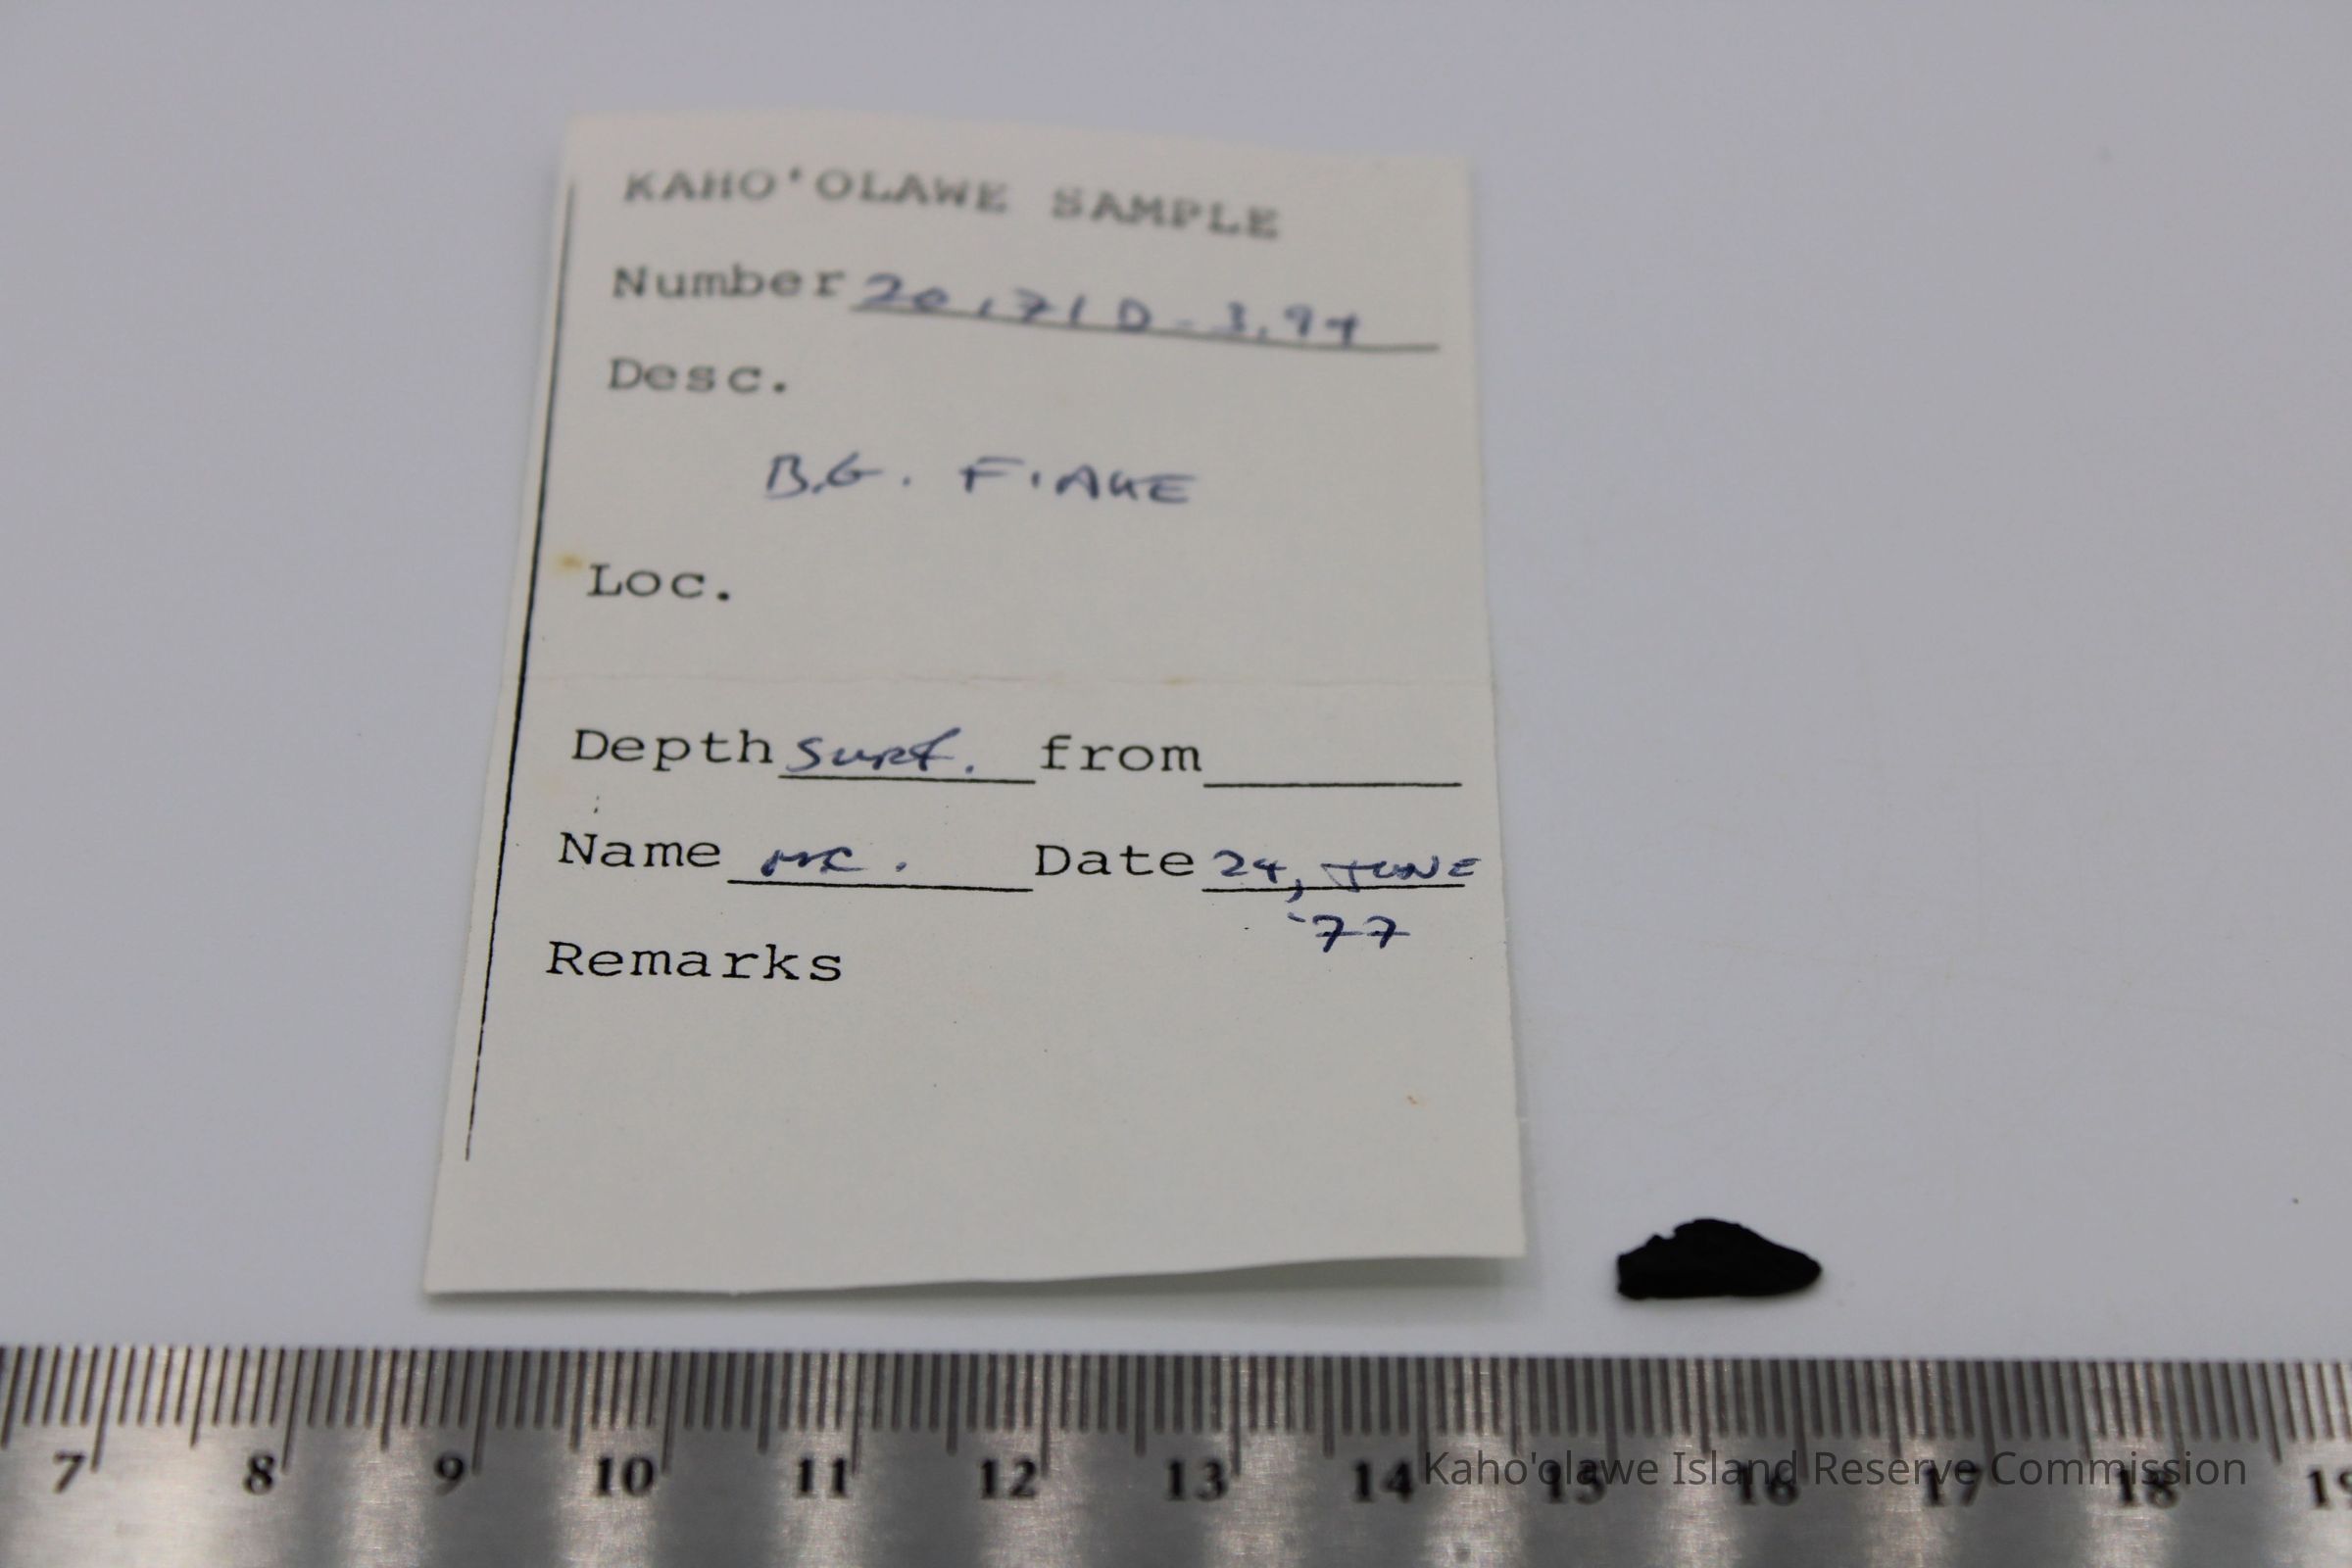 KAHO'OLAWE SAMPLE
Number 20,71D-3.94
Desc.
B.G. FLAKE
Loc.
Depth Surf. from
Name MC. Date 24, JUNE
'77
Remarks
7 8 9 10 11 12 13 14 15 16 17 18 19
Kaho'olawe Island Reserve Commission